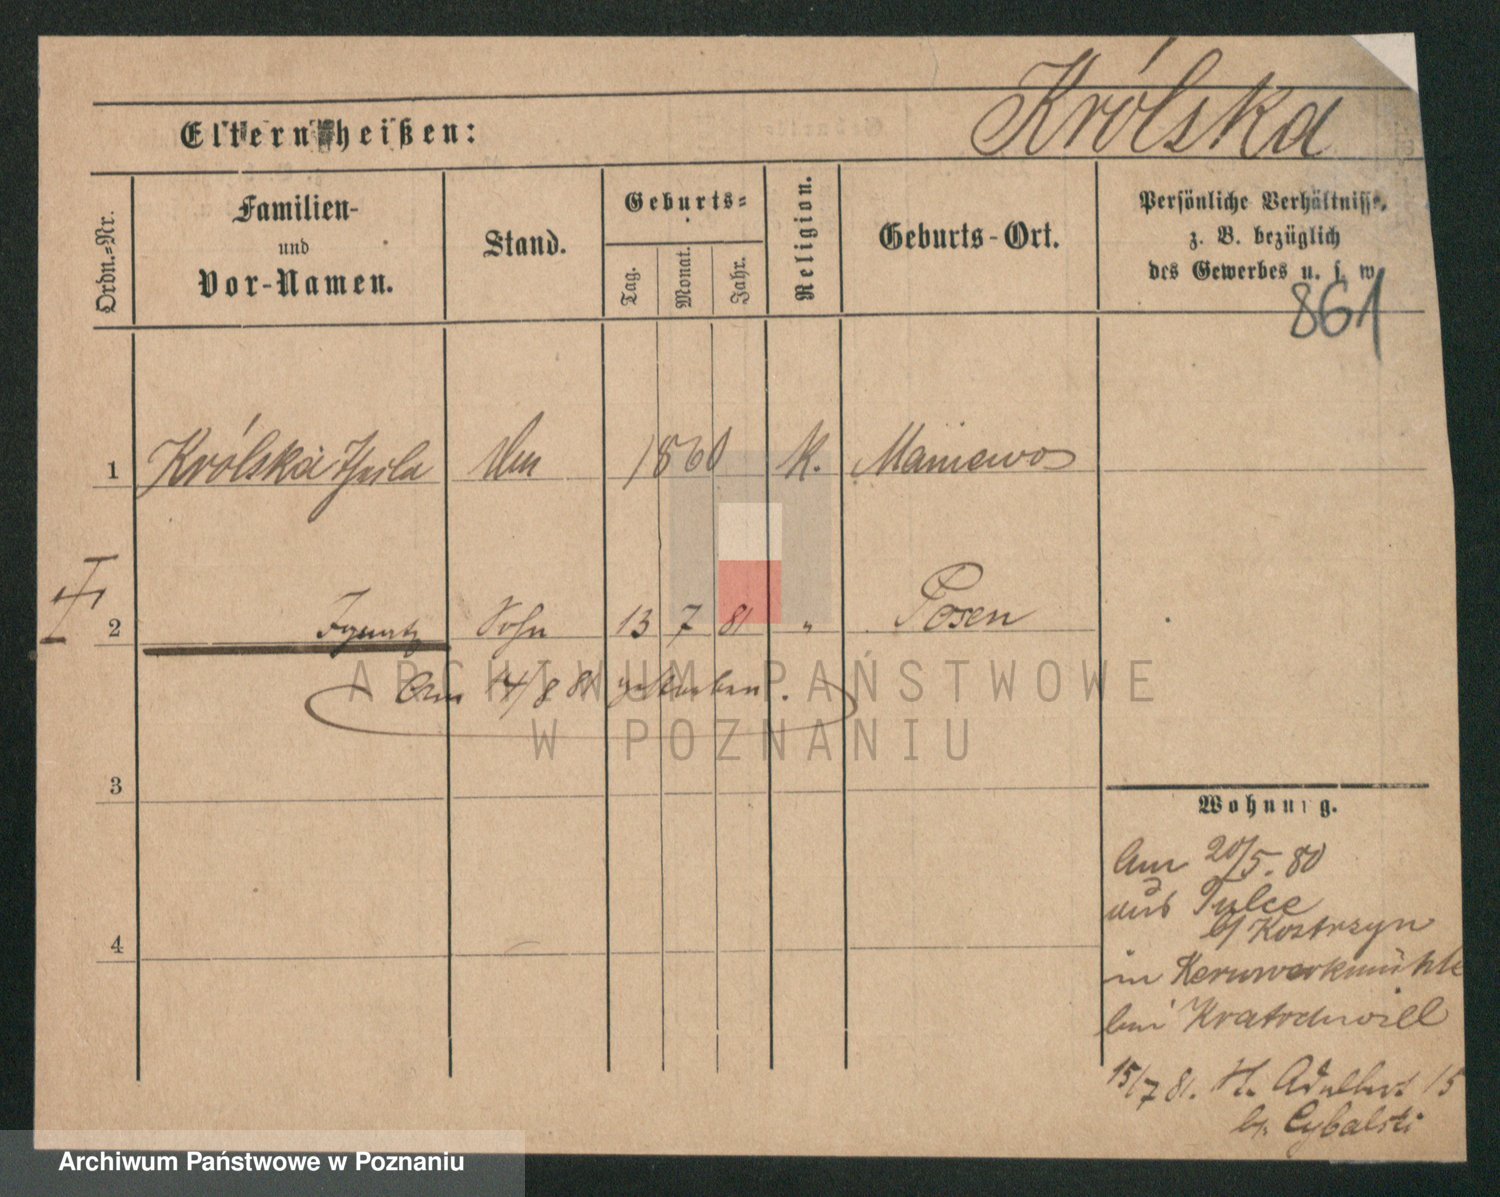 Królska
Elternheißen:
Ordn.-Nr.
Familien-
und
Vor-Namen.
Stand.
Geburts-
Tag.
Monat.
Jahr.
Religion.
Geburts-Ort.
Persönliche Verhältnisse,
z. B. bezüglich
des Gewerbes u. s. w.
861
1 Królska Thecla 1860 K. Maniewo
2 Ignatz Sohn 13 7 81 " Posen
Am 14/8 81 gestorben.
3
4
Wohnung.
Am 20/5. 80
aus Tulce
b/ Kostrzyn
in Kernwerkmühle
bei Kratochwill
15/7 81. St. Adalbert 15
b. Cybalski
ARCHIWUM PAŃSTWOWE
W POZNANIU
Archiwum Państwowe w Poznaniu